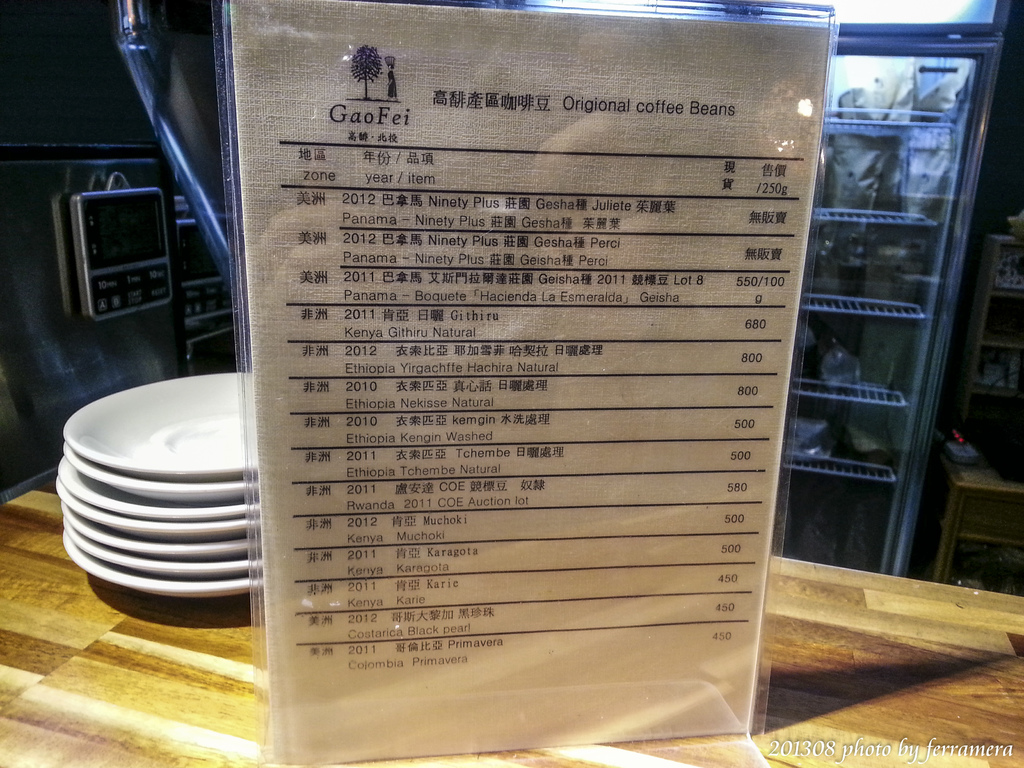 GaoFei
高緋・北投
高緋產區咖啡豆 Origional coffee Beans
地區 年份 / 品項 現貨 售價
zone year / item /250g
美洲 2012 巴拿馬 Ninety Plus 莊園 Gesha種 Juliete 茱麗葉 無販賣
Panama – Ninety Plus 莊園 Gesha種 茱麗葉
美洲 2012 巴拿馬 Ninety Plus 莊園 Gesha種 Perci 無販賣
Panama – Ninety Plus 莊園 Geisha種 Perci
美洲 2011 巴拿馬 艾斯門拉爾達莊園 Geisha種 2011 競標豆 Lot 8 550/100g
Panama – Boquete「Hacienda La Esmeralda」 Geisha
非洲 2011 肯亞 日曬 Githiru 680
Kenya Githiru Natural
非洲 2012 衣索比亞 耶加雪菲 哈契拉 日曬處理 800
Ethiopia Yirgachffe Hachira Natural
非洲 2010 衣索匹亞 真心話 日曬處理 800
Ethiopia Nekisse Natural
非洲 2010 衣索匹亞 kemgin 水洗處理 500
Ethiopia Kengin Washed
非洲 2011 衣索匹亞 Tchembe 日曬處理 500
Ethiopia Tchembe Natural
非洲 2011 盧安達 COE 競標豆 奴隸 580
Rwanda 2011 COE Auction lot
非洲 2012 肯亞 Muchoki 500
Kenya Muchoki
非洲 2011 肯亞 Karagota 500
Kenya Karagota
非洲 2011 肯亞 Karie 450
Kenya Karie
美洲 2012 哥斯大黎加 黑珍珠 450
Costarica Black pearl
美洲 2011 哥倫比亞 Primavera 450
Cojombia Primavera
201308 photo by ferramera